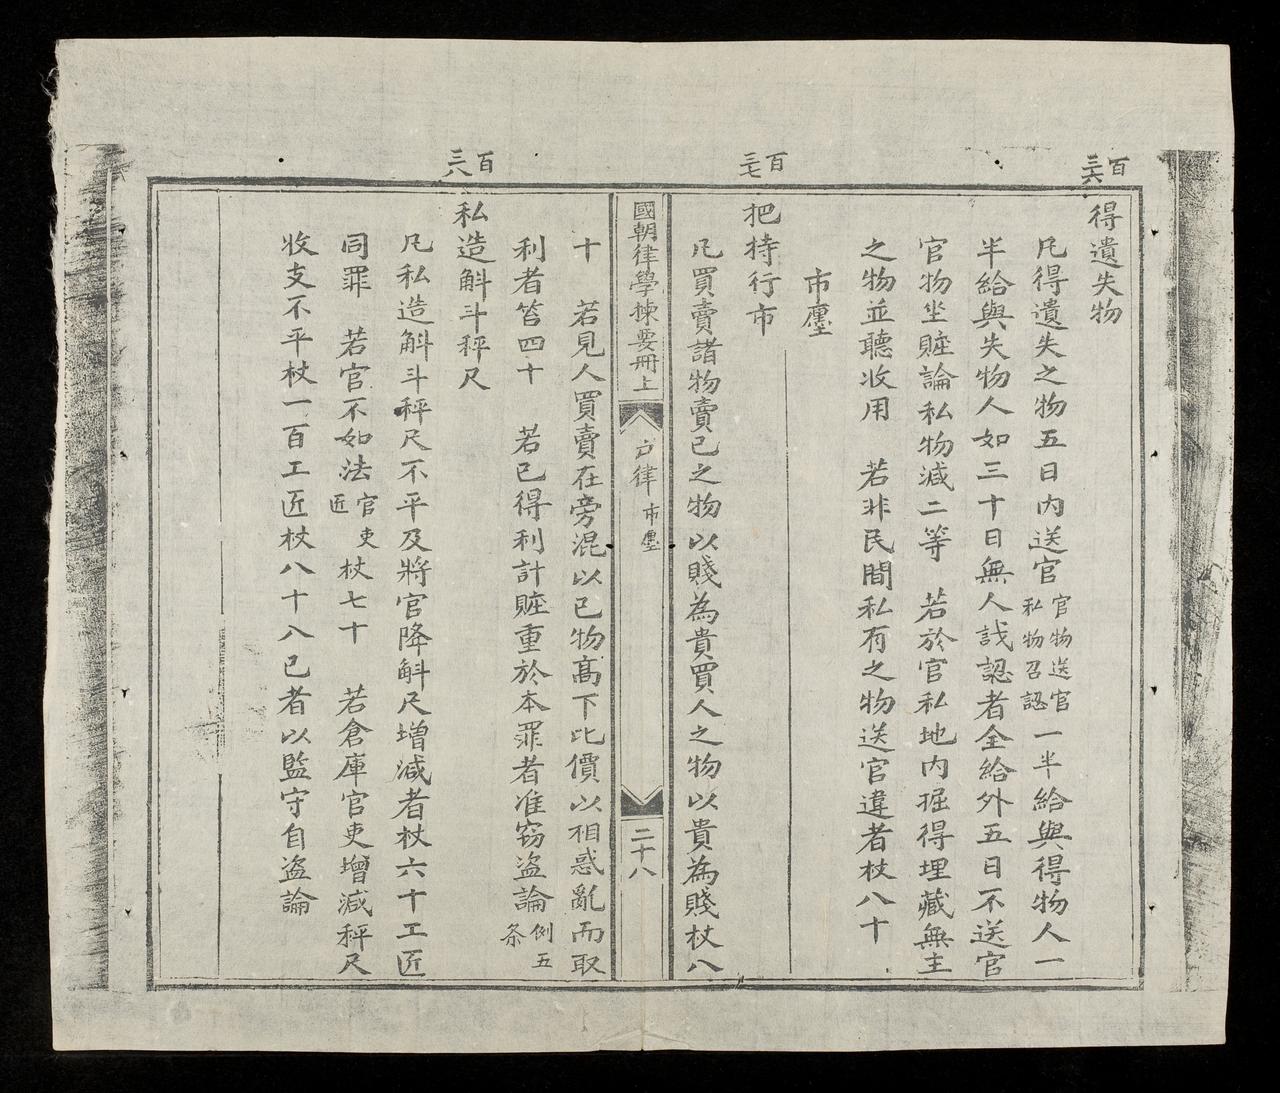 百三六
得遺失物
凡得遺失之物五日內送官官物送官私物召認一半給與得物人一
半給與失物人如三十日無人識認者全給外五日不送官
官物坐賍論私物減二等　若於官私地內掘得埋藏無主
之物並聽收用　若非民間私有之物送官違者杖八十
市廛
百三七
把持行市
凡買賣諸物賣己之物以賤為貴買人之物以貴為賤杖八
國朝律學揀要冊上
戶律 市廛
二十八
十　若見人買賣在旁混以己物高下比價以相惑亂而取
利者笞四十　若已得利計賍重於本罪者准竊盗論例五条
百三八
私造斛斗秤尺
凡私造斛斗秤尺不平及將官降斛尺增減者杖六十工匠
同罪　若官不如法官吏匠杖七十　若倉庫官吏增減秤尺
收支不平杖一百工匠杖八十入己者以監守自盗論